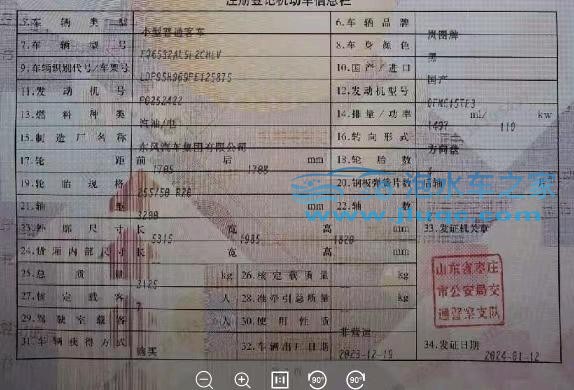 注册登记机动车信息栏
5.车辆类型 小型普通客车 6.车辆品牌 岚图牌
7.车辆型号 8.车身颜色 黑
9.车辆识别代号/车架号 10.国产/进口 国产
11.发动机号 12.发动机型号
13.燃料种类 汽油/电 14.排量/功率 1497 ml/ 110 kw
15.制造厂名称 东风汽车集团有限公司 16.转向形式 方向盘
17.轮距 前 1705 后 1708 mm 18.轮胎数
19.轮胎规格 255/50 R20 20.钢板弹簧片数 后轴 片
21.轴距 3200 mm 22.轴数
23.外廓尺寸 长 5315 宽 1985 高 1820 mm 33.发证机关章
24.货厢内部尺寸 长 宽 高 mm
25.总质量 3125 kg 26.核定载质量 kg
27.核定载客 7 人 28.准牵引总质量 kg
29.驾驶室载客 人 30.使用性质 非营运
31.车辆获得方式 购买 32.车辆出厂日期 2023-12-19 34.发证日期 2024-01-12
山东省枣庄
市公安局交
通警察支队
二手水车之家